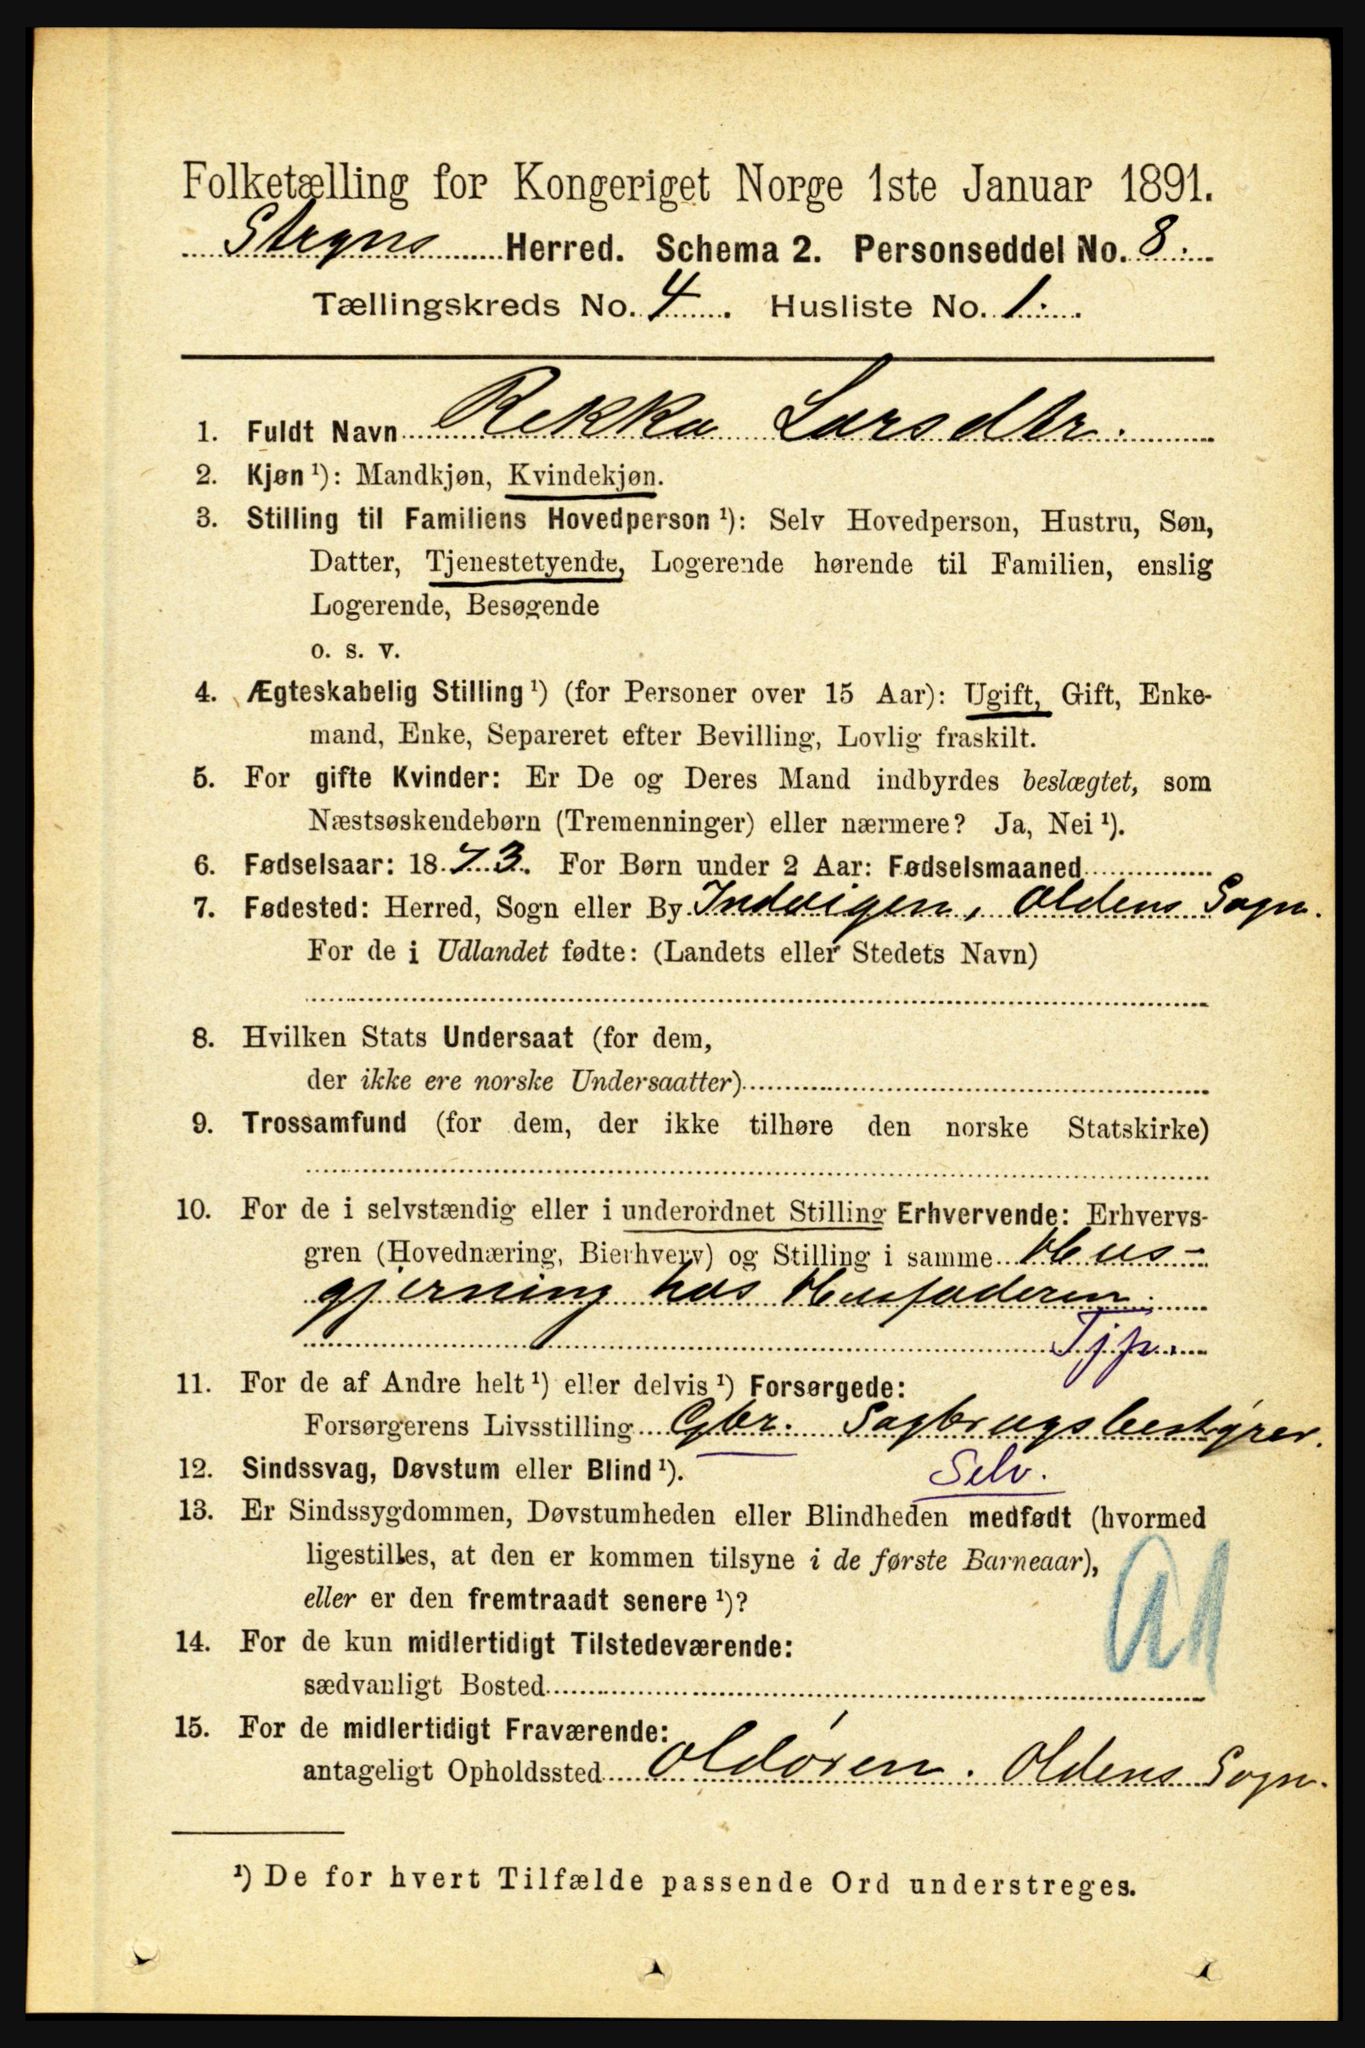 Folketælling for Kongeriget Norge 1ste Januar 1891.
Stryns Herred. Schema 2. Personseddel No. 8.
Tællingskreds No. 4. Husliste No. 1.
1. Fuldt Navn Rekka Larsdtr.
2. Kjøn ¹): Mandkjøn, Kvindekjøn.
3. Stilling til Familiens Hovedperson ¹): Selv Hovedperson, Hustru, Søn,
Datter, Tjenestetyende, Logerende hørende til Familien, enslig
Logerende, Besøgende
o. s. v.
4. Ægteskabelig Stilling ¹) (for Personer over 15 Aar): Ugift, Gift, Enke-
mand, Enke, Separeret efter Bevilling, Lovlig fraskilt.
5. For gifte Kvinder: Er De og Deres Mand indbyrdes beslægtet, som
Næstsøskendebørn (Tremenninger) eller nærmere? Ja, Nei ¹).
6. Fødselsaar: 1873. For Børn under 2 Aar: Fødselsmaaned
7. Fødested: Herred, Sogn eller By Indvigen, Oldens Sogn.
For de i Udlandet fødte: (Landets eller Stedets Navn)
8. Hvilken Stats Undersaat (for dem,
der ikke ere norske Undersaatter)
9. Trossamfund (for dem, der ikke tilhøre den norske Statskirke)
10. For de i selvstændig eller i underordnet Stilling Erhvervende: Erhvervs-
gren (Hovednæring, Bierhverv) og Stilling i samme Hus-
gjerning hos Husfaderen.
Tjp.
11. For de af Andre helt ¹) eller delvis ¹) Forsørgede:
Forsørgerens Livsstilling Gbr. Sagbrugsbestyrer.
12. Sindssvag, Døvstum eller Blind ¹). Selv.
13. Er Sindssygdommen, Døvstumheden eller Blindheden medfødt (hvormed
ligestilles, at den er kommen tilsyne i de første Barneaar),
eller er den fremtraadt senere ¹)?
14. For de kun midlertidigt Tilstedeværende:
sædvanligt Bosted
15. For de midlertidigt Fraværende:
antageligt Opholdssted Oldøren. Oldens Sogn.
¹) De for hvert Tilfælde passende Ord understreges.